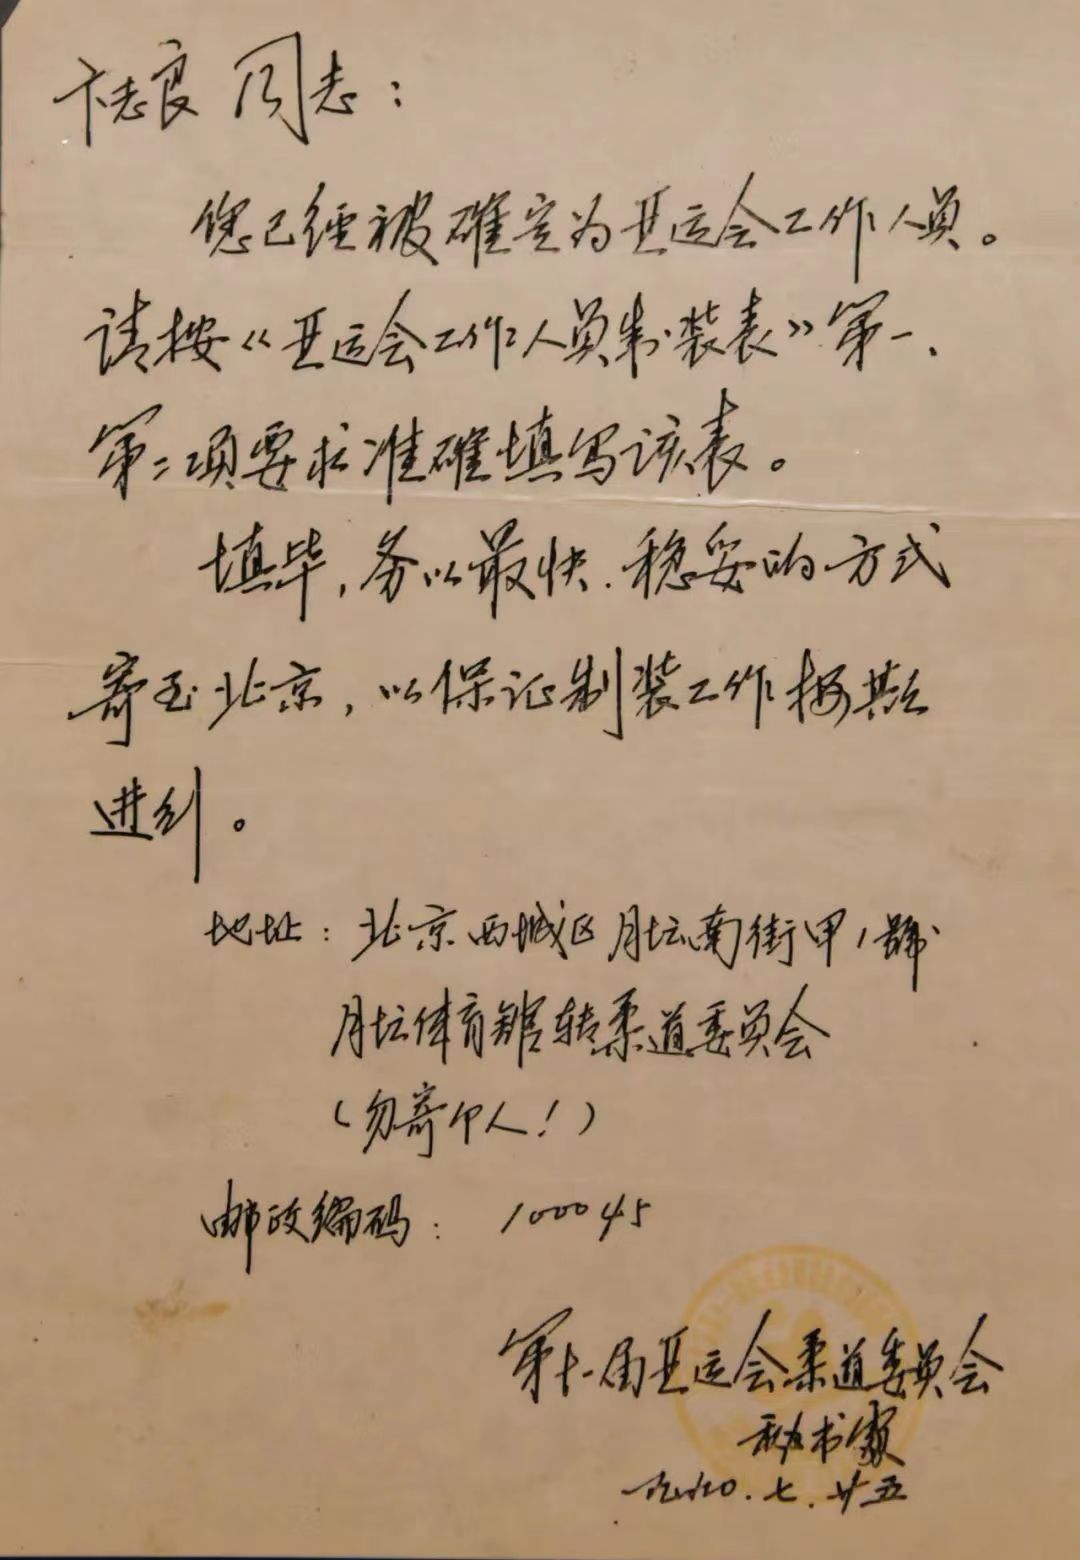 卞志良同志：
您已经被確定为亚运会工作人员。
请按《亚运会工作人员制装表》第一、
第二项要求准確填写该表。
填毕，务以最快、稳妥的方式
寄至北京，以保证制装工作按期
进行。
地址：北京西城区月坛南街甲1號
月坛体育舘转柔道委员会
（勿寄个人！）
邮政编码：100045
第十一届亚运会柔道委员会
秘书家
九〇.七.廿五